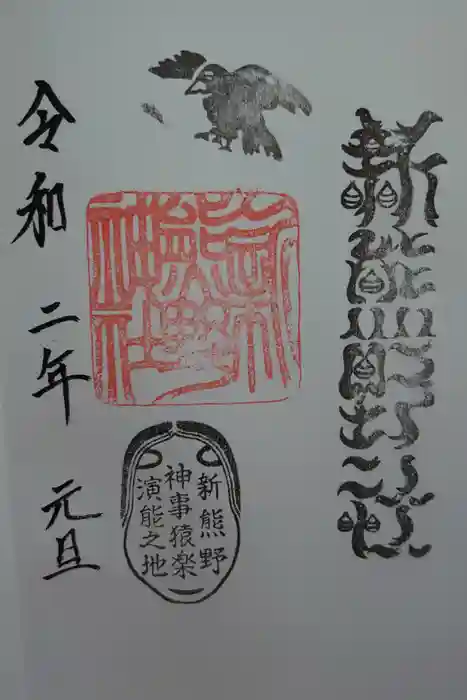 新熊野
新熊野神社
新熊野
神事猿楽
演能之地
令和 二年 元旦